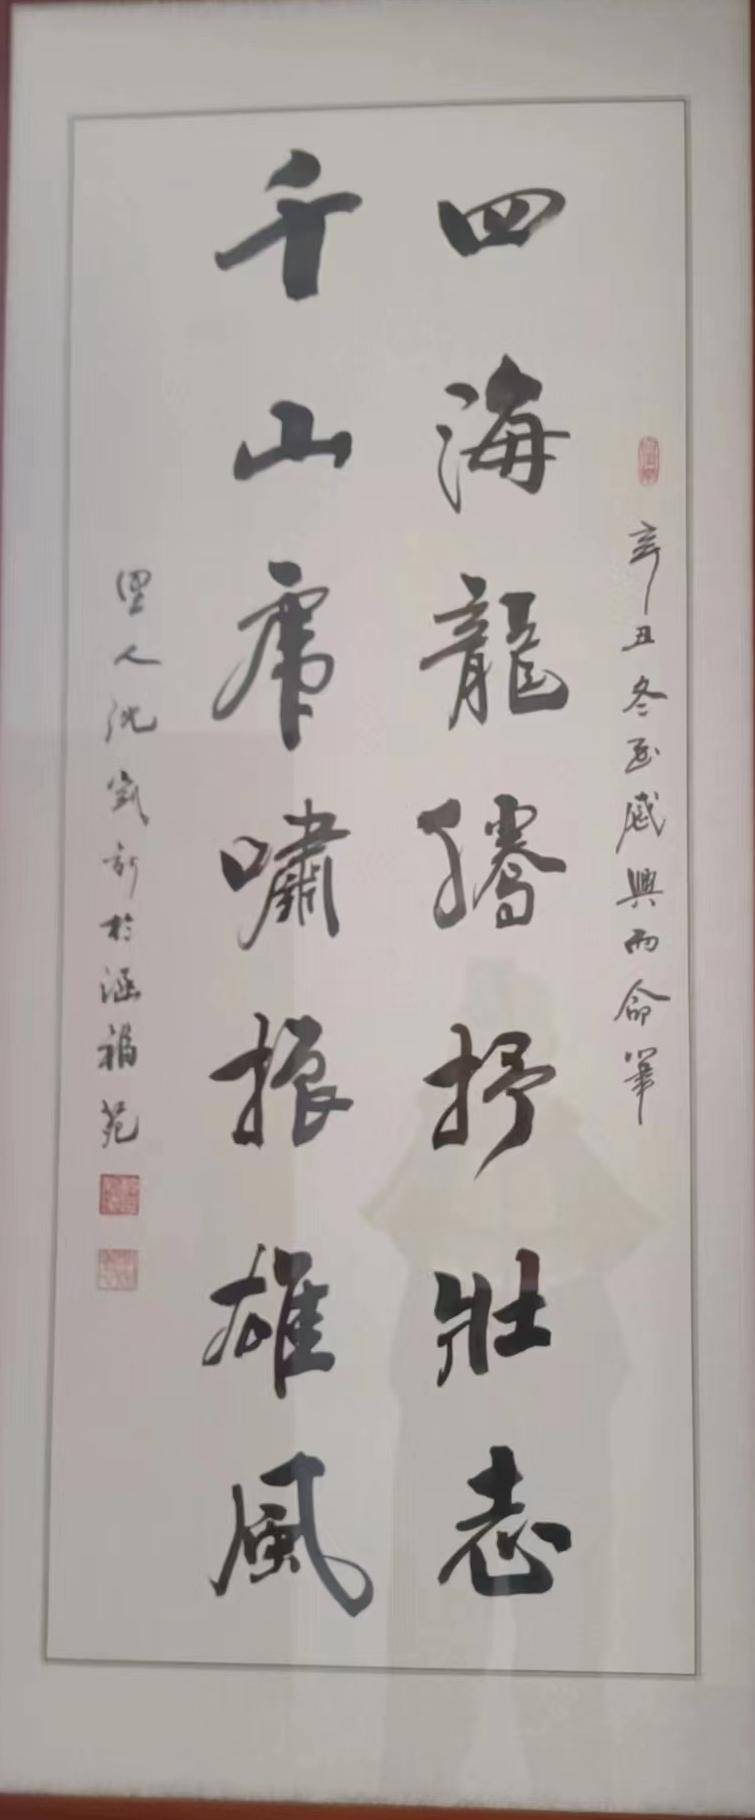 辛丑冬至感興而命筆
四海龍騰抒壯志
千山虎嘯振雄風
里人沈
於涵福苑